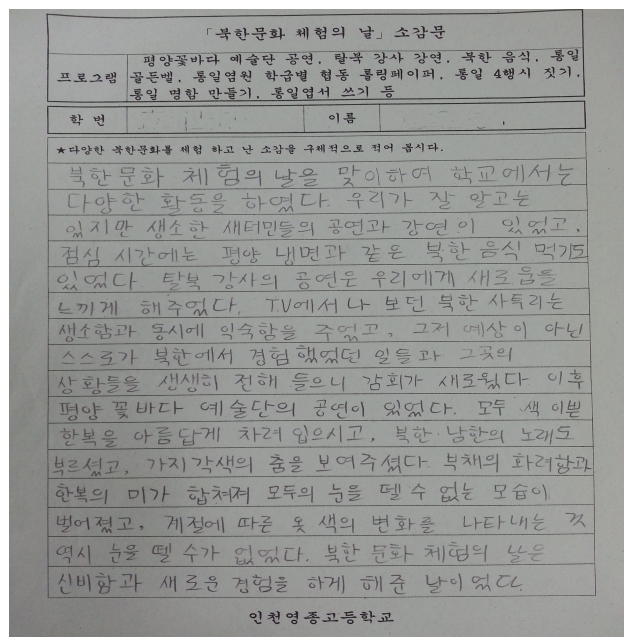 「북한문화 체험의 날」 소감문
프로그램
평양꽃바다 예술단 공연, 탈북 강사 강연, 북한 음식, 통일
골든벨, 통일염원 학급별 협동 롤링페이퍼, 통일 4행시 짓기,
통일 명함 만들기, 통일엽서 쓰기 등
학 번
이름
★다양한 북한문화를 체험 하고 난 소감을 구체적으로 적어 봅시다.
북한문화 체험의 날을 맞이하여 학교에서는
다양한 활동을 하였다. 우리가 잘 알고는
있지만 생소한 새터민들의 공연과 강연이 있었고,
점심 시간에는 평양 냉면과 같은 북한 음식 먹기도
있었다. 탈북 강사의 공연은 우리에게 새로움을
느끼게 해주었다. TV에서나 보던 북한 사투리는
생소함과 동시에 익숙함을 주었고, 그저 예상이 아닌
스스로가 북한에서 경험했었던 일들과 그곳의
상황들을 생생히 전해 들으니 감회가 새로웠다. 이후
평양 꽃바다 예술단의 공연이 있었다. 모두 색 이쁜
한복을 아름답게 차려 입으시고, 북한·남한의 노래도
부르셨고, 가지각색의 춤을 보여주셨다. 부채의 화려함과
한복의 미가 합쳐져 모두의 눈을 뗄 수 없는 모습이
벌어졌고, 계절에 따른 옷 색의 변화를 나타내는 것
역시 눈을 뗄 수가 없었다. 북한 문화 체험의 날은
신비함과 새로운 경험을 하게 해준 날이었다.
인천영종고등학교